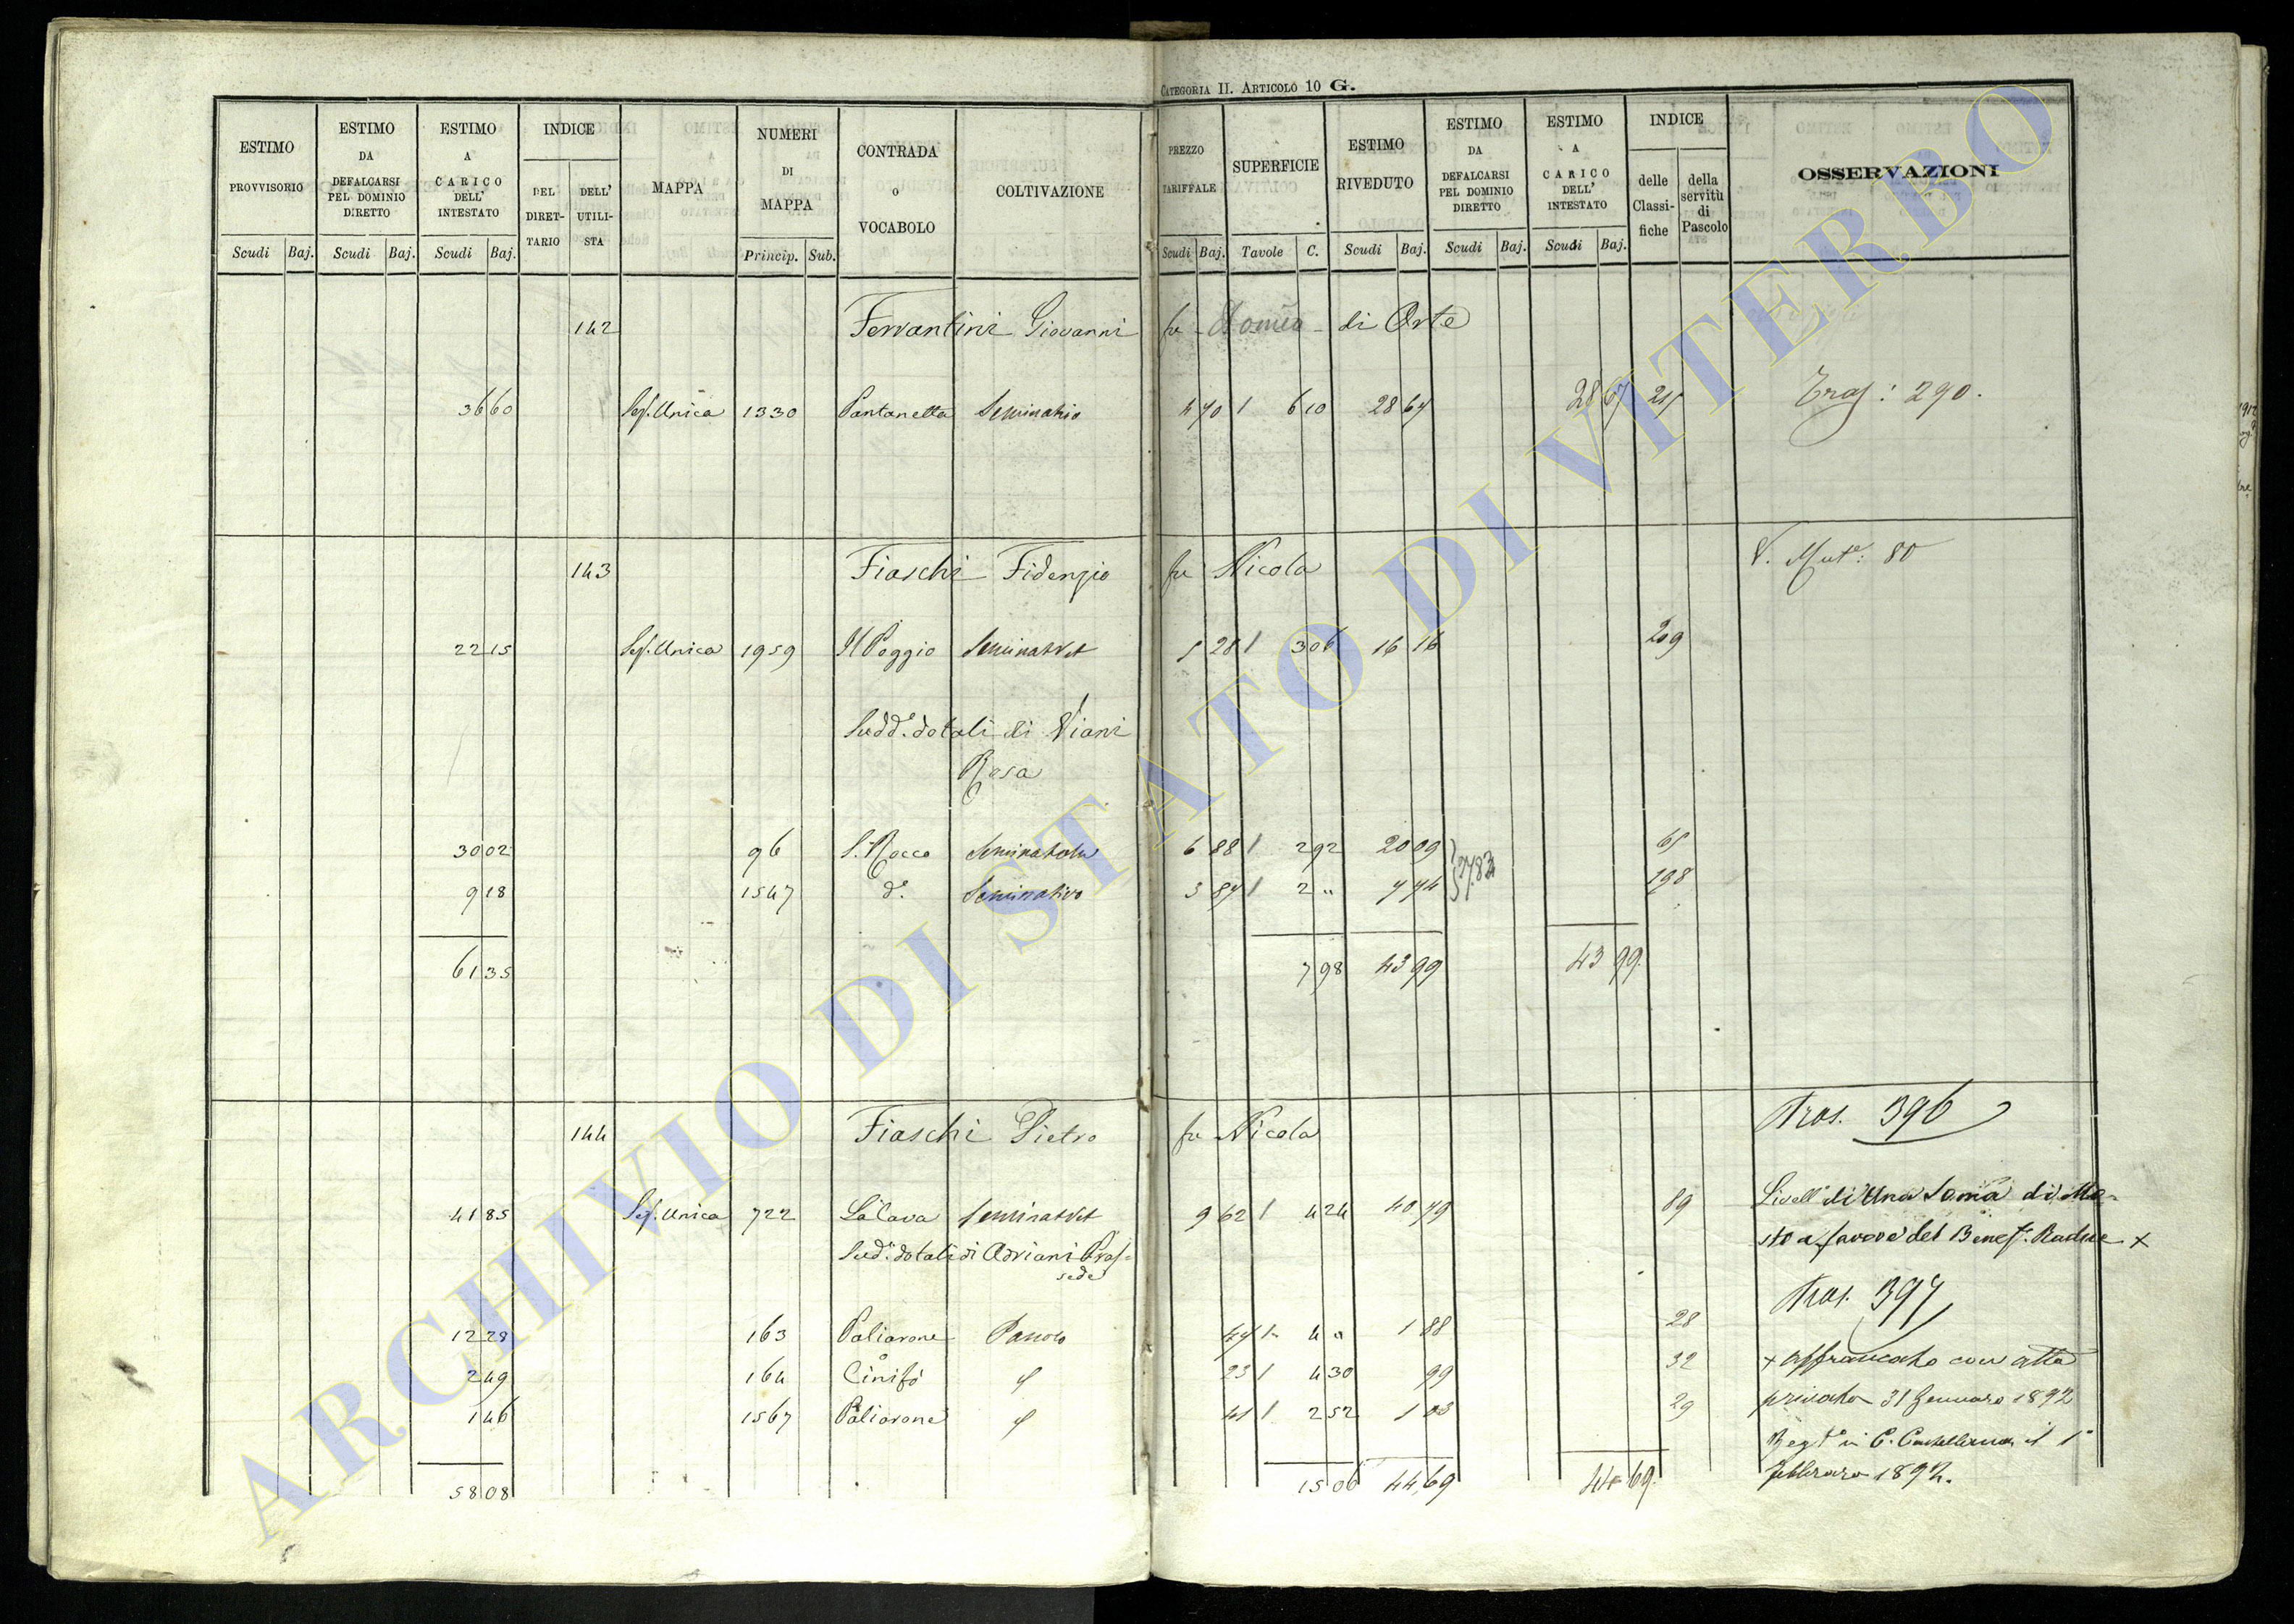 CATEGORIA II. ARTICOLO 10 G.
ESTIMO PROVVISORIO Scudi Baj.
ESTIMO DA DEFALCARSI PEL DOMINIO DIRETTO Scudi Baj.
ESTIMO A CARICO DELL' INTESTATO Scudi Baj.
INDICE DEL DIRET-TARIO DELL' UTILI-STA
MAPPA
NUMERI DI MAPPA Princip. Sub.
CONTRADA o VOCABOLO
COLTIVAZIONE
PREZZO TARIFFALE Scudi Baj.
SUPERFICIE Tavole C.
ESTIMO RIVEDUTO Scudi Baj.
ESTIMO DA DEFALCARSI PEL DOMINIO DIRETTO Scudi Baj.
ESTIMO A CARICO DELL' INTESTATO Scudi Baj.
INDICE delle Classi-fiche della servitù di Pascolo
OSSERVAZIONI
142 Ferrantini Giovanni fu di Orte
36 60 Sez. Unica 1330 Pantanella 4 70 6 10 28 67 28 67 Tras: 290.
143 Fiaschi Fidenzio fu Nicola V. Mut.e: 80
22 15 Sez. Unica 1959 Il Poggio Seminat Vit 5 28 3 06 16 16 209
Sudd.o dotali di Viani
Rosa
30 02 96 S. Rocco 6 88 2 92 20 09
9 18 1547 d.o Seminativo 3 87 2 " 7 74 27.83 198
61 35 7 98 43 99 43 99
144 Fiaschi Pietro fu Nicola Tras. 396
41 85 Sez. Unica 722 La Cava Seminat Vit 9 62 4 24 40 79 89 Livell.o di Una Soma di Mo-
sto a favore del Benef.o
Sud.o dotali di Adriani Pras-
sede
Tras. 397
12 28 163 Paliarone 47 4 " 1 88 28
2 49 164 Cinifo 23 4 30 99 32 × affrancato con atto
1 46 1567 Paliarone 41 2 52 1 03 29 privato 31 Gennaro 1892
Regt.o in C. Castellana il 1°
58 08 15 06 44,69 44 69. febbraro 1892.
ARCHIVIO DI STATO DI VITERBO